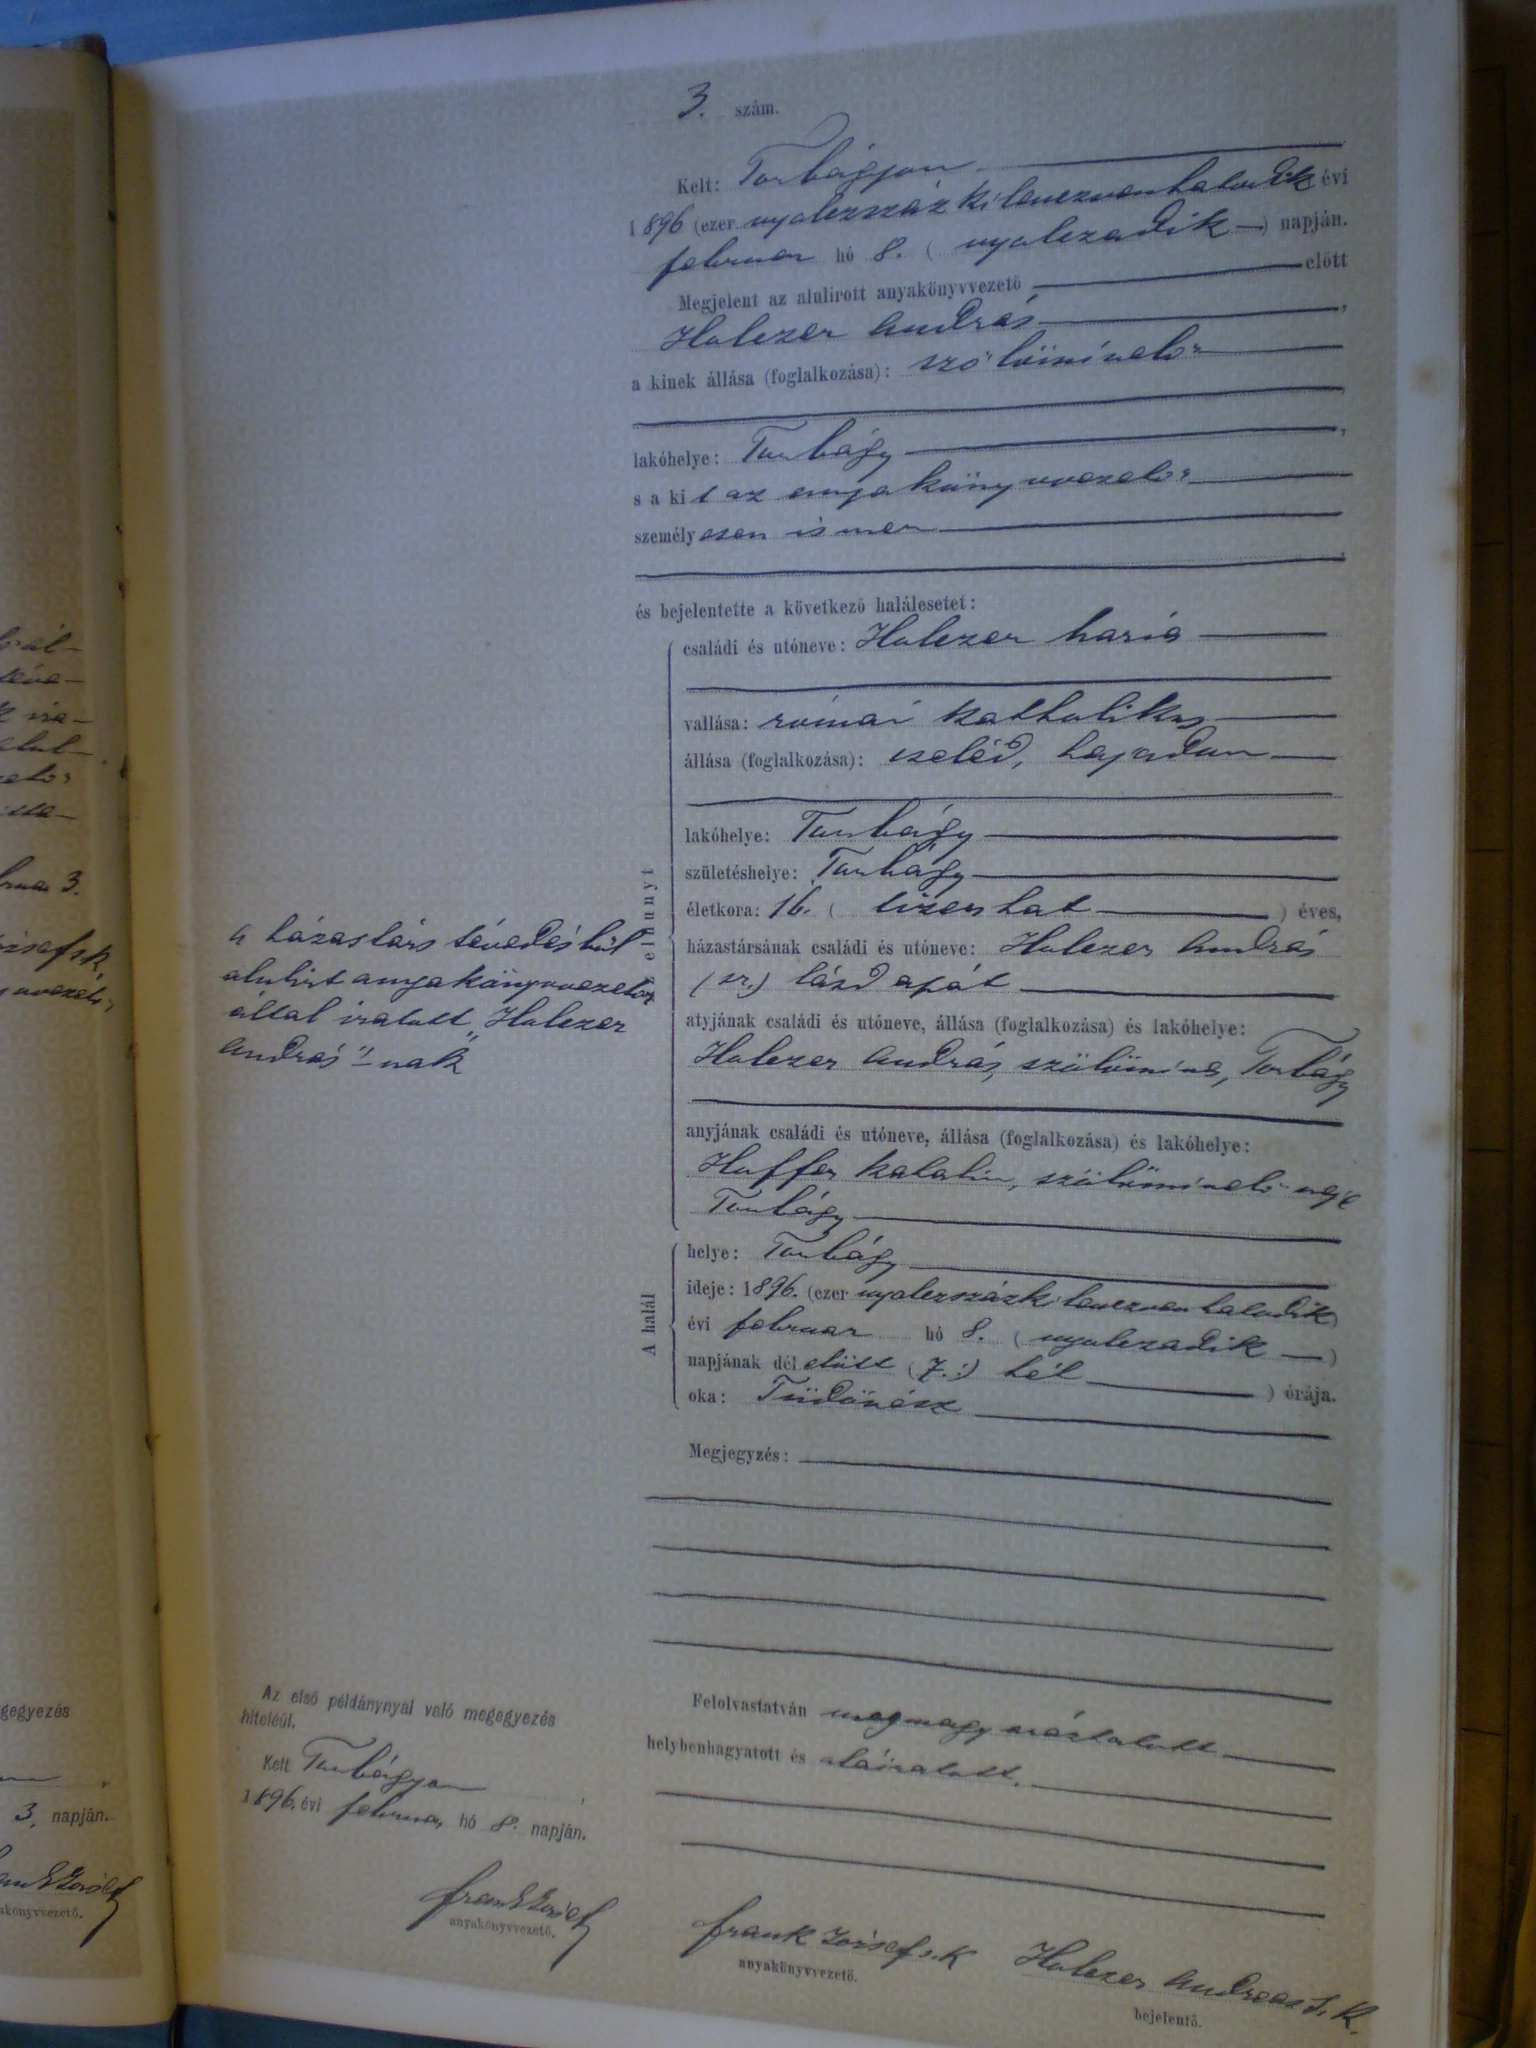 3. szám.
Kelt: Torbágyon
1896 (ezer nyolczszáz kilenczvenhatodik évi
februar hó 8. ( nyolczadik ) napján.
Megjelent az alulirott anyakönyvvezető előtt
Holczer András,
a kinek állása (foglalkozása): szőlőmívelő
lakóhelye: Torbágy,
s a kit az anyakönyvvezető
személyesen ismer
és bejelentette a következő halálesetet:
családi és utóneve: Holczer Mária
vallása: római katholikus
állása (foglalkozása): cseléd, hajadon
lakóhelye: Torbágy
születéshelye: Torbágy
életkora: 16. ( tizenhat ) éves,
házastársának családi és utóneve: Holczer András
(sr.) lásd apát
atyjának családi és utóneve, állása (foglalkozása) és lakóhelye:
Holczer András, szőlőmíves, Torbágy
anyjának családi és utóneve, állása (foglalkozása) és lakóhelye:
Hoffer Katalin, szőlőmívelő neje
Torbágy
Az elhunyt
A halál
helye: Torbágy
ideje: 1896. (ezer nyolczszázkilenczvenhatodik)
évi februar hó 8. ( nyolczadik )
napjának dél előtt (7.) hét ) órája.
oka: Tüdővész
Megjegyzés:
Felolvastatván megmagyaráztatott
helybenhagyatott és aláiratott.
Frank József s. k
anyakönyvvezető.
Holczer Andreas s. k.
bejelentő.
A házastárs tévedésből
alulirt anyakönyvvezető
által iratott „Holczer
András"-nak
Az első példánynyal való megegyezés
hiteléűl.
Kelt Torbágyon
1896. évi februar hó 8. napján.
Frank József
anyakönyvvezető.
gegyezés
3. napján.